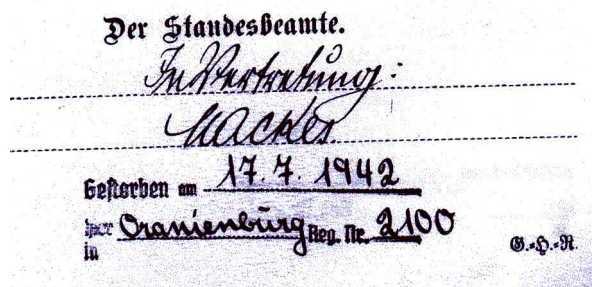 Der Standesbeamte.
In Vertretung:
Mackes.
Gestorben am 17. 7. 1942
in Oranienburg Reg. Nr. 2100
G.-H.-R.